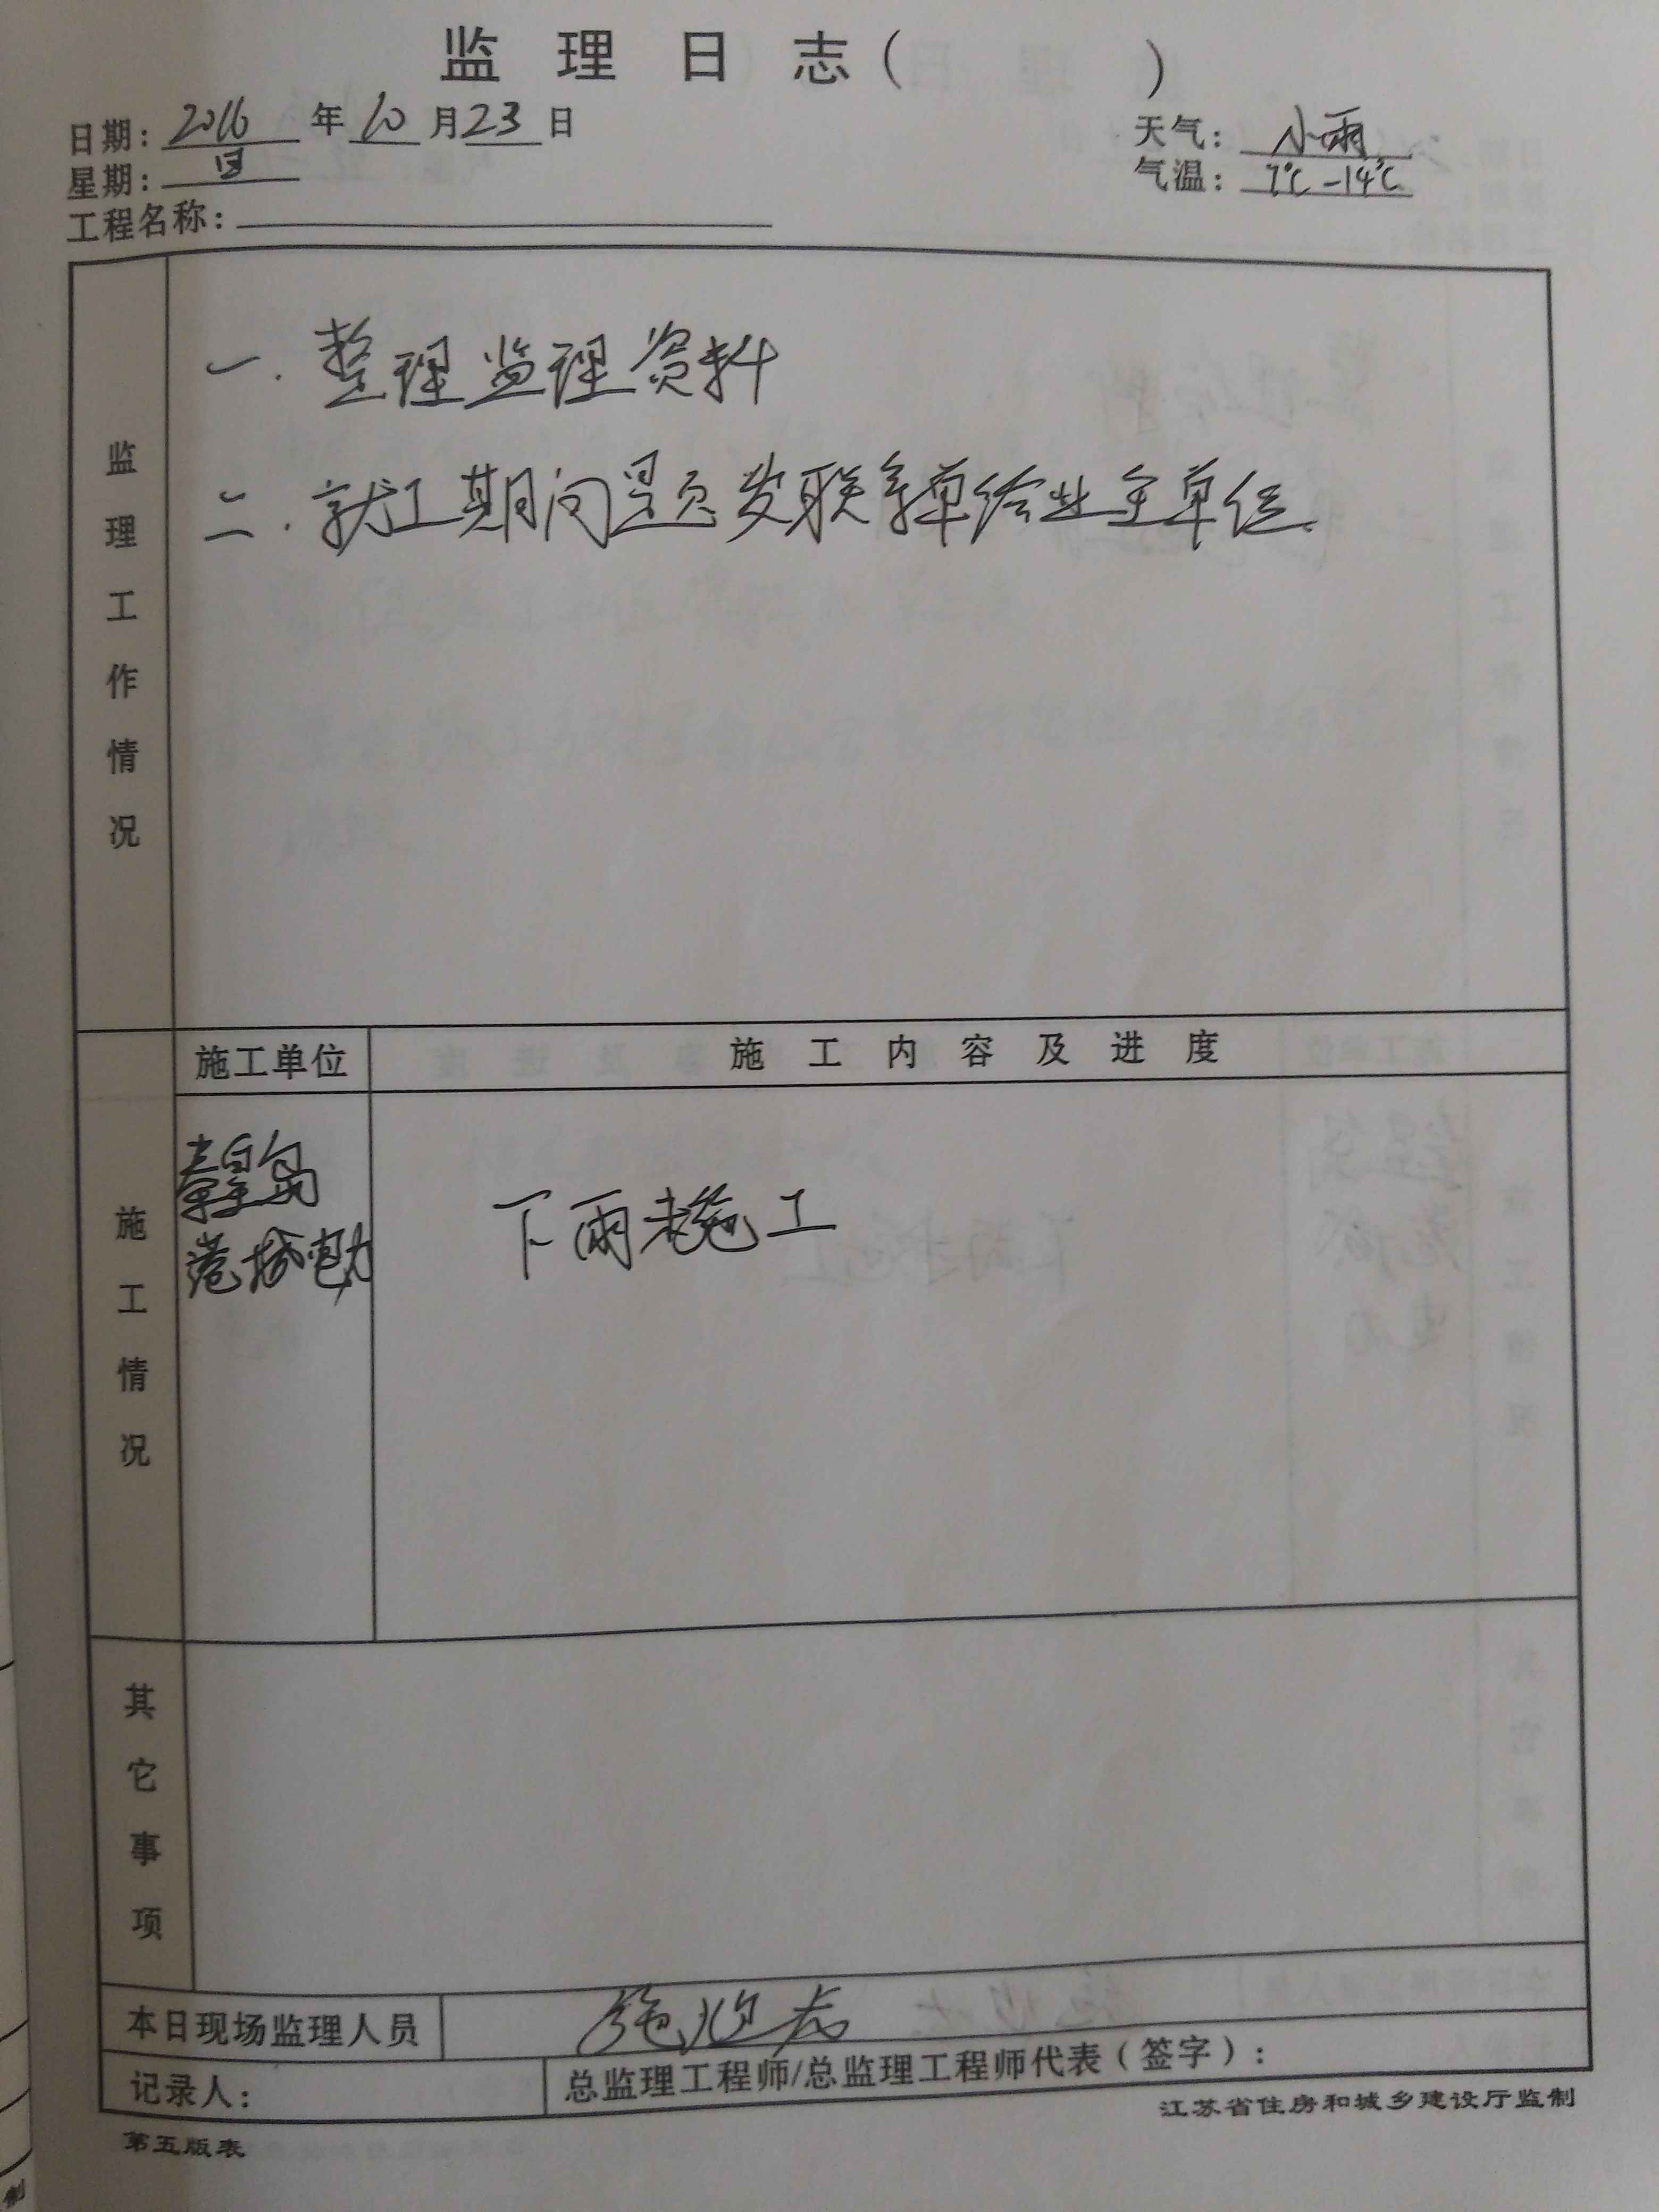 监理日志（ ）
日期：2016年10月23日 天气：小雨
星期：日 气温：7℃-14℃
工程名称：
监理工作情况
一.整理监理资料
二.就工期问题发联系单给业主单位.
施工单位 施工内容及进度
施工情况
秦皇岛
港城电力
下雨未施工
其它事项
本日现场监理人员 施
记录人： 总监理工程师/总监理工程师代表（签字）：
江苏省住房和城乡建设厅监制
第五版表
制